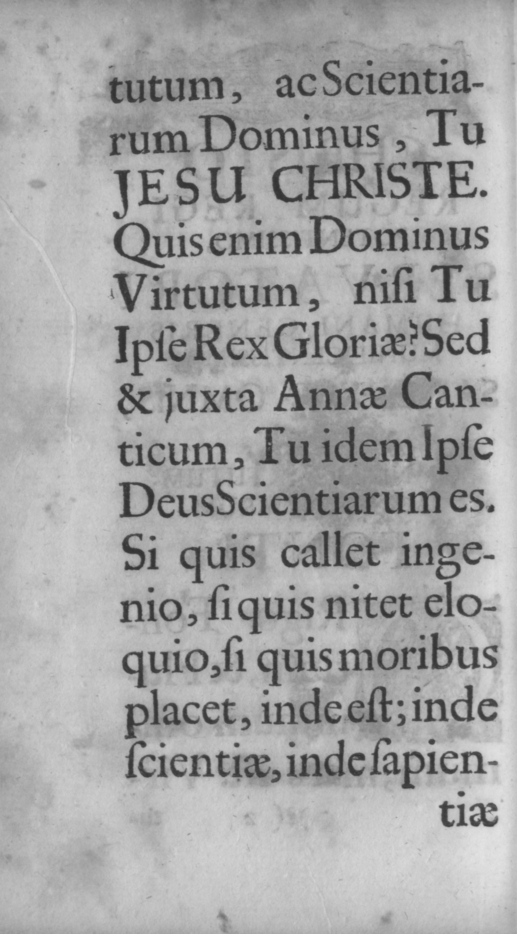 tutum, ac Scientia-
rum Dominus, Tu
JESU CHRISTE.
Quis enim Dominus
Virtutum, niſi Tu
Ipſe Rex Gloriæ? Sed
& juxta Annæ Can-
ticum, Tu idem Ipſe
Deus Scientiarum es.
Si quis callet inge-
nio, ſi quis nitet elo-
quio, ſi quis moribus
placet, inde eſt; inde
ſcientiæ, inde ſapien-
tiæ